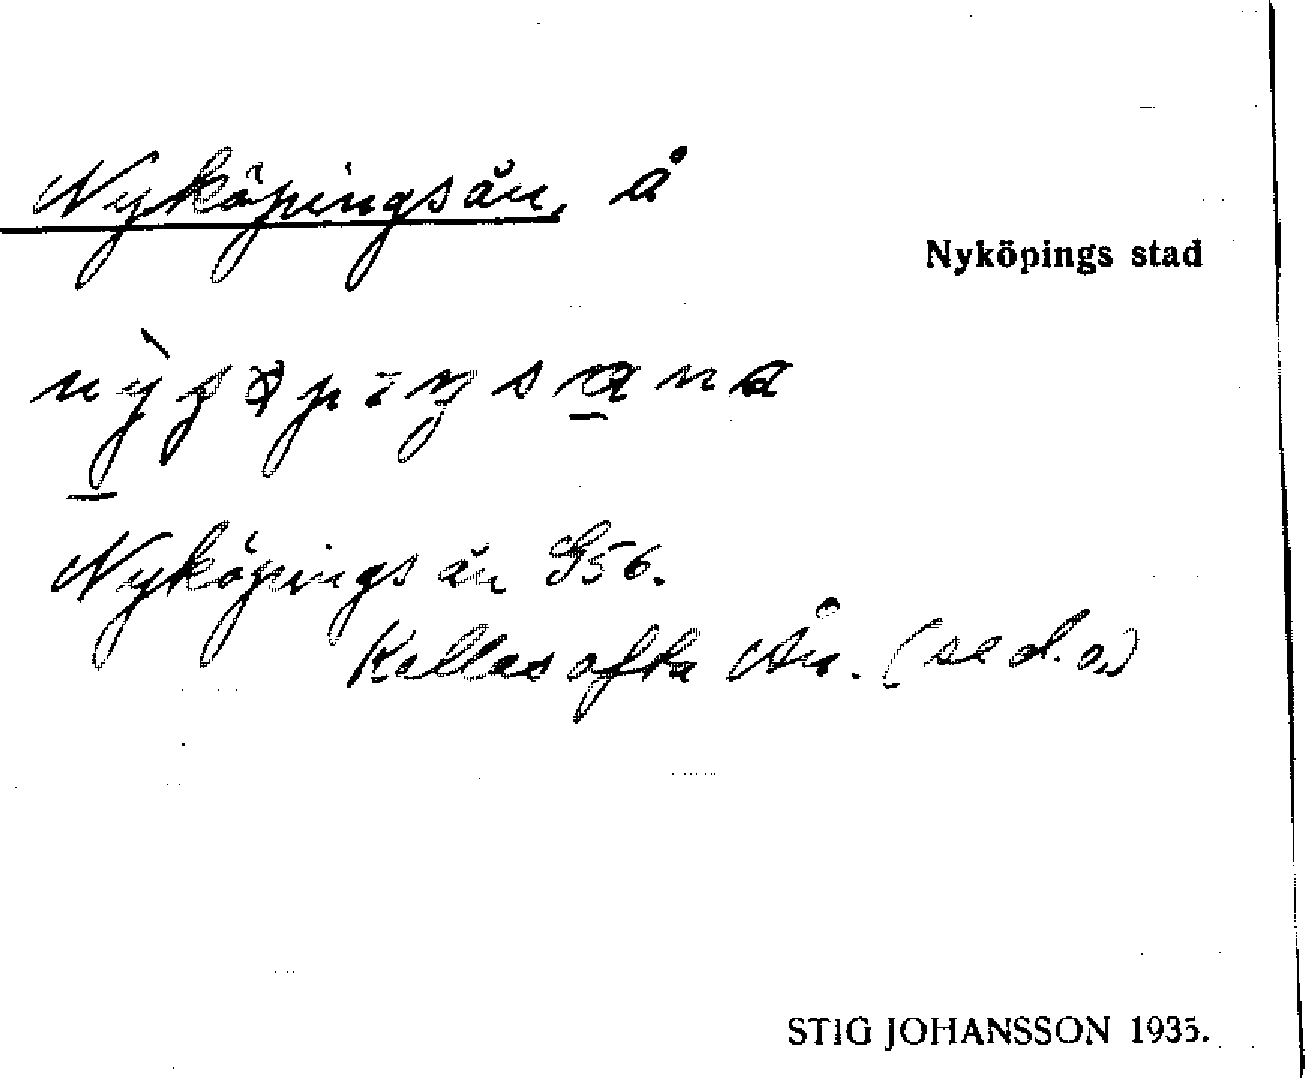 Nyköpingsån, å
Nyköpings stad
Nyköpingsån G56.
Kallas ofta Ån. (se d. o.)
STIG JOHANSSON 1935.